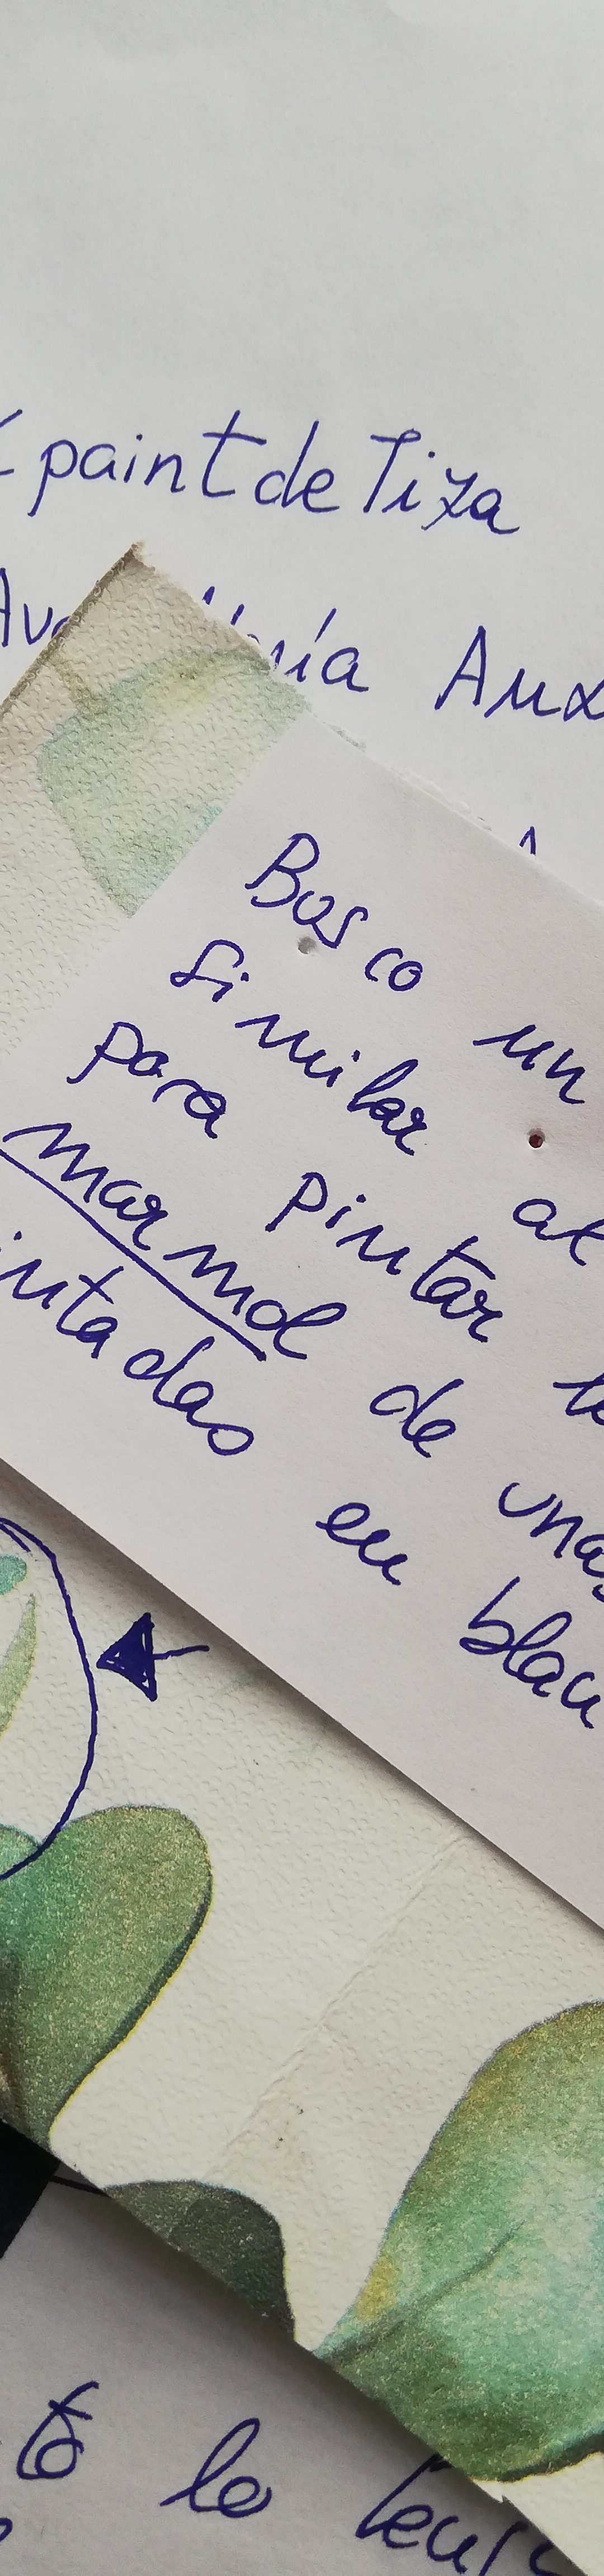 paint de Tiza
Aux
Busco un
similar al
para pintar
marmol de unas
intadas en blan
to lo